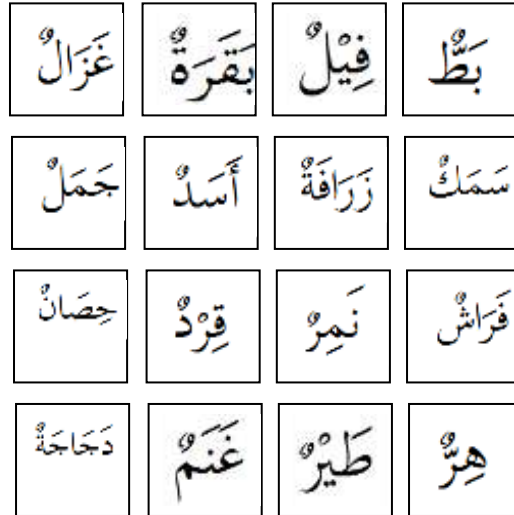 بَطٌّ فِيْلٌ بَقَرَةٌ غَزَالٌ
سَمَكٌ زَرَافَةٌ أَسَدٌ جَمَلٌ
فَرَاشٌ نَمِرٌ قِرْدٌ حِصَانٌ
هِرٌّ طَيْرٌ غَنَمٌ دَجَاجَةٌ